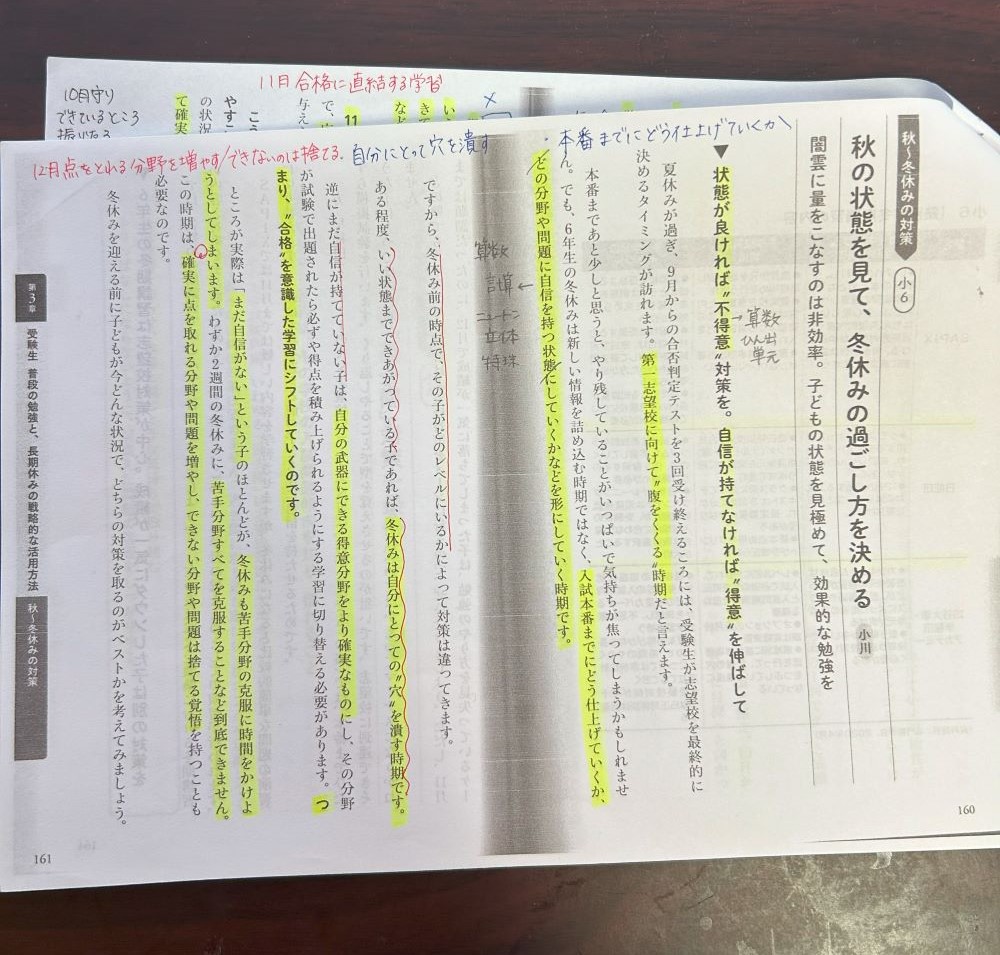 11月 合格に直結する学習
10月守り
できているところ
12月点をとれる分野を増やす/できないのは捨てる、自分にとって穴を潰す
・本番までにどう仕上げていくか
秋〜冬休みの対策
小6
秋の状態を見て、冬休みの過ごし方を決める
小川
闇雲に量をこなすのは非効率。子どもの状態を見極めて、効果的な勉強を
▼状態が良ければ〝不得意〟対策を。自信が持てなければ〝得意〟を伸ばして
→算数
ひん出
単元
夏休みが過ぎ、9月からの合否判定テストを3回受け終えるころには、受験生が志望校を最終的に
決めるタイミングが訪れます。第一志望校に向けて〝腹をくくる〟時期だと言えます。
本番まであと少しと思うと、やり残していることがいっぱいで気持ちが焦ってしまうかもしれませ
ん。でも、6年生の冬休みは新しい情報を詰め込む時期ではなく、入試本番までにどう仕上げていくか、
どの分野や問題に自信を持つ状態にしていくかなどを形にしていく時期です。
算数
言算←
ニュートン
立体
特殊
ですから、冬休み前の時点で、その子がどのレベルにいるかによって対策は違ってきます。
ある程度、いい状態までできあがっている子であれば、冬休みは自分にとっての〝穴〟を潰す時期です。
逆にまだ自信が持てていない子は、自分の武器にできる得意分野をより確実なものにし、その分野
が試験で出題されたら必ずや得点を積み上げられるようにする学習に切り替える必要があります。つ
まり、〝合格〟を意識した学習にシフトしていくのです。
ところが実際は「まだ自信がない」という子のほとんどが、冬休みも苦手分野の克服に時間をかけよ
うとしてしまいます。わずか2週間の冬休みに、苦手分野すべてを克服することなど到底できません。
この時期は、確実に点を取れる分野や問題を増やし、できない分野や問題は捨てる覚悟を持つことも
必要なのです。
冬休みを迎える前に子どもが今どんな状況で、どちらの対策を取るのがベストかを考えてみましょう。
第3章
受験生 普段の勉強と、長期休みの戦略的な活用方法
秋〜冬休みの対策
160
161